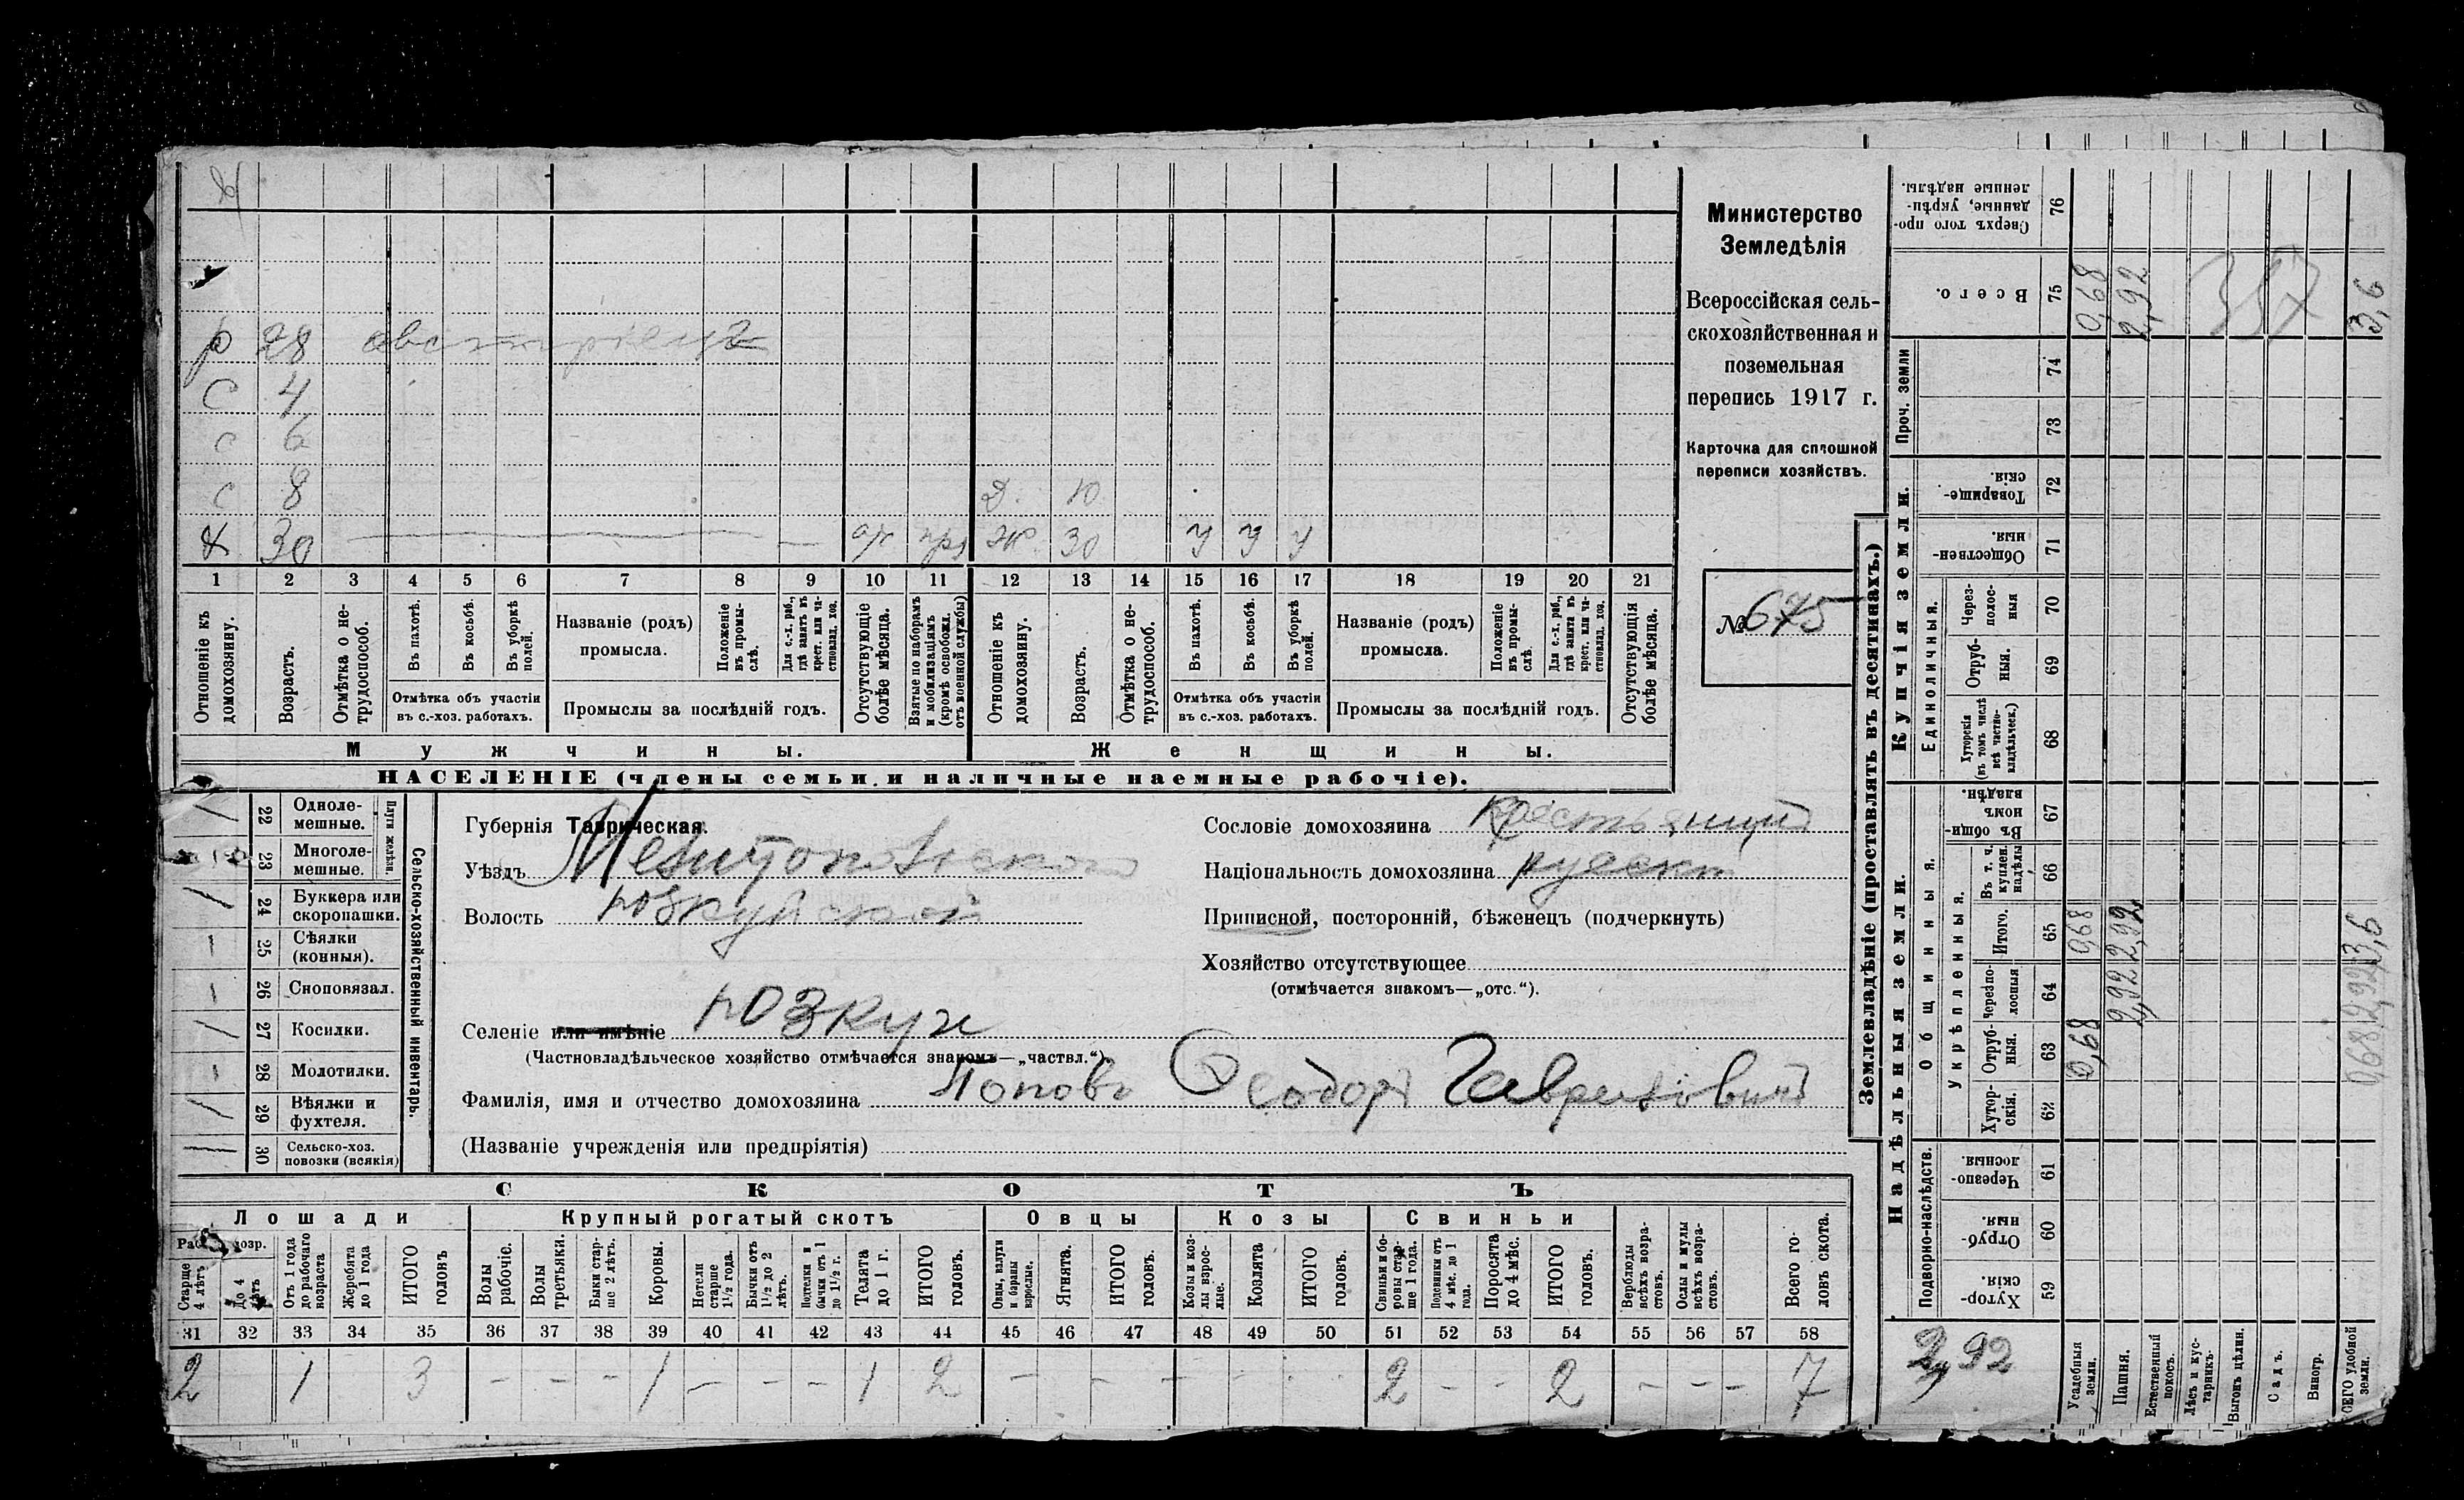 р 28 австріецъ
С 4
с 6
с 8 Д. 10
Х 30 Ж. 30 У У У
1 2 3 4 5 6 7 8 9 10 11 12 13 14 15 16 17 18 19 20 21
Отношеніе къ домохозяину.
Возрастъ.
Отмѣтка о не-трудоспособ.
Въ пахотѣ.
Въ косьбѣ.
Въ уборкѣ полей.
Отмѣтка объ участіи въ с.-хоз. работахъ.
Названіе (родъ) промысла.
Положеніе въ промы-слѣ.
Для с.-х. раб., гдѣ занятъ въ крест. или ча-стновлад. хоз.
Промыслы за послѣдній годъ.
Отсутствующіе болѣе мѣсяца.
Взятые по наборамъ и мобилизаціямъ (кромѣ освобожд. отъ военной службы)
Отношеніе къ домохозяину.
Возрастъ.
Отмѣтка о не-трудоспособ.
Въ пахотѣ.
Въ косьбѣ.
Въ уборкѣ полей.
Отмѣтка объ участіи въ с.-хоз. работахъ.
Названіе (родъ) промысла.
Положеніе въ промы-слѣ.
Для с.-х. раб., гдѣ занята въ крест. или ча-стновлад. хоз.
Промыслы за послѣдній годъ.
Отсутствующія болѣе мѣсяца.
Мужчины. Женщины.
НАСЕЛЕНІЕ (члены семьи и наличные наемные рабочіе).
Министерство
Земледѣлія
Всероссійская сель-
скохозяйственная и
поземельная
перепись 1917 г.
Карточка для сплошной
переписи хозяйствъ.
№ 675
22 Одноле-мешные.
23 Многоле-мешные.
Плуги желѣзн.
24 Буккера или скоропашки.
25 Сѣялки (конныя).
26 Сноповязал.
27 Косилки.
28 Молотилки.
29 Вѣялки и фухтеля.
30 Сельско-хоз. повозки (всякія)
Сельско-хозяйственный инвентарь.
Губернія Таврическая.
Уѣздъ Мелитопольскаго
Волость
Селеніе или имѣніе
(Частновладѣльческое хозяйство отмѣчается знакомъ—„частвл.“)
Фамилія, имя и отчество домохозяина Поповъ Ѳеодоръ Гавриловичъ
(Названіе учрежденія или предпріятія)
Сословіе домохозяина
Національность домохозяина русск
Приписной, посторонній, бѣженецъ (подчеркнуть)
Хозяйство отсутствующее
(отмѣчается знакомъ—„отс.“).
СКОТЪ
Лошади Крупный рогатый скотъ Овцы Козы Свиньи
Старше 4 лѣтъ
До 4 лѣтъ
Отъ 1 года до рабочаго возраста
Жеребята до 1 года
ИТОГО головъ
Волы рабочіе.
Волы третьяки.
Быки стар-ше 2 лѣтъ.
Коровы.
Нетели старше 1½ года.
Бычки отъ 1½ до 2 лѣтъ.
Подтелки и бычки отъ 1 до 1½ г.
Телята до 1 г.
ИТОГО головъ.
Овцы, валухи и бараны взрослые.
Ягнята.
ИТОГО головъ.
Козы и коз-лы взрос-лые.
Козлята
ИТОГО головъ.
Свиньи и бо-ровы стар-ше 1 года.
Подсвинки отъ 4 мѣс. до 1 года.
Поросята до 4 мѣс.
ИТОГО головъ.
Верблюды всѣхъ возра-стовъ.
Ослы и мулы всѣхъ возра-стовъ.
Всего го-ловъ скота.
31 32 33 34 35 36 37 38 39 40 41 42 43 44 45 46 47 48 49 50 51 52 53 54 55 56 57 58
2 1 3 - - - 1 - - - 1 2 - - - - - - 2 - - 2 - - - 7
Землевладѣніе (проставлять въ десятинахъ.)
Купчія земли.
Надѣльныя земли.
Проч. земли
Единоличныя.
Общинныя.
Укрѣпленныя.
Подворно-наслѣдств.
Сверхъ того про-данные, укрѣп-ленные надѣлы. 76
Всего. 75 0,68 2,92 3,6
357
74
73
Товарище-скія. 72
Обществен-ныя. 71
Через-полос-ныя 70
Отруб-ныя. 69
Хуторскія (въ томъ числѣ всѣ частно-владѣльческ.) 68
Въ общи-номъ владѣн. 67
Въ т. ч. куплен. надѣлы 66
Итого. 65 0,68 2,92 3,6
Черезпо-лосныя 64 2,92 2,92
Отруб-ныя. 63 0,68 0,68
Хутор-скія. 62
Черезпо-лосныя. 61
Отруб-ныя. 60
Хутор-скія. 59
2,92
Усадебныя земли.
Пашня.
Естественный покосъ.
Лѣсъ и кус-тарникъ.
Выгонъ цѣлин.
Садъ.
Виногр.
ВСЕГО удобной земли.